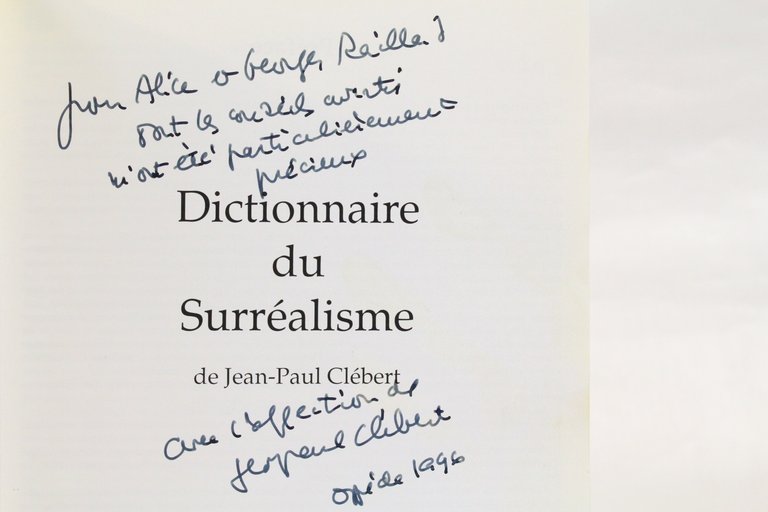 pour Alice et Georges Raillard
dont les conseils avertis
m'ont été particulièrement
précieux
Dictionnaire
du
Surréalisme
de Jean-Paul Clébert
avec l'affection de
Jean paul Clébert
Oppède 1996